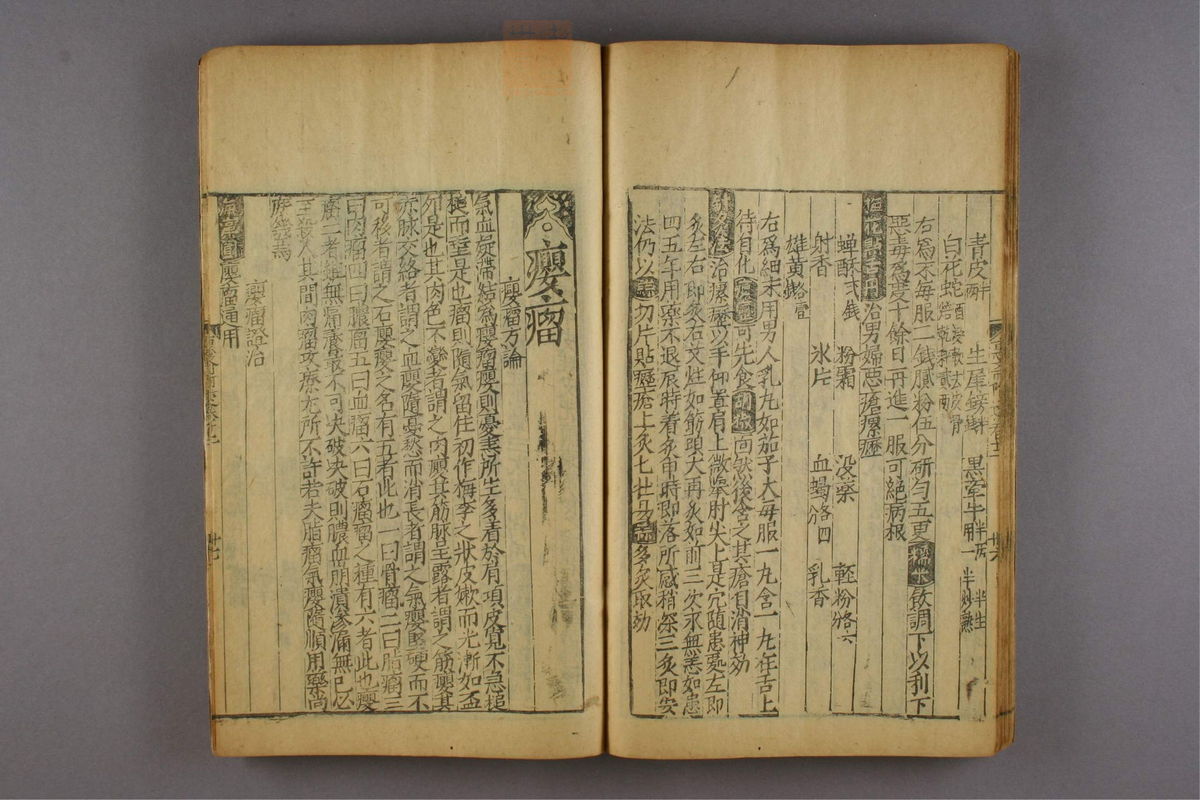 青皮 生犀 黑牽牛 半斤 用一半生一半炒熟
白花蛇
右為末每服二錢膩粉伍分研勻五更糯米飲調下以利下
惡毒為度十餘日再進一服可絶病根
治男婦惡瘡瘰癧
蟾酥 粉霜 没藥 輕粉
射香 氷片 血蝎 乳香
雄黃
右爲細末用男人乳丸如茄子大每服一丸含一丸在舌上
待自化可先食回然後含之其瘡自消神効
灸法治瘰癧以手仰置肩上微舉肘尖上是穴隨患處左即
灸左右即灸右艾炷如筋頭大再灸如前三次永無恙如患
四五年用藥不退辰時着灸申時即落所感稍深三灸即安
法仍以蒜切片貼癧瘡上灸七壯易蒜多灸取効
癭瘤
癭瘤方論
氣血凝滯結爲癭瘤癭則憂恚所生多着於肩項皮寛不急搥
搥而垂是也瘤則隨氣留住初作梅李之狀皮嫩而光漸如盃
卵是也其肉色不變者謂之肉癭其筋脉呈露者謂之筋癭其
赤脉交絡者謂之血癭隨憂愁而消長者謂之氣癭堅硬而不
可移者謂之石癭癭之名有五者此也一曰骨瘤二曰脂瘤三
曰肉瘤四曰膿瘤五曰血瘤六曰石瘤瘤之種有六者此也癭
瘤二者雖無痛癢最不可决破决破則膿血崩潰滲漏無已必
至殺人其間肉瘤攻療尤所不許若夫脂瘤氣癭隨順用藥尚
庶幾焉
癭瘤證治
癭瘤通用